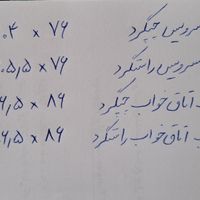 سرویس چپگرد ۷۶ × ۰۴
سرویس راستگرد ۷۶ × ۰۵,۵
ب اتاق خواب چپگرد ۸۶ × ۶,۵
ب اتاق خواب راستگرد ۸۶ × ۶,۵